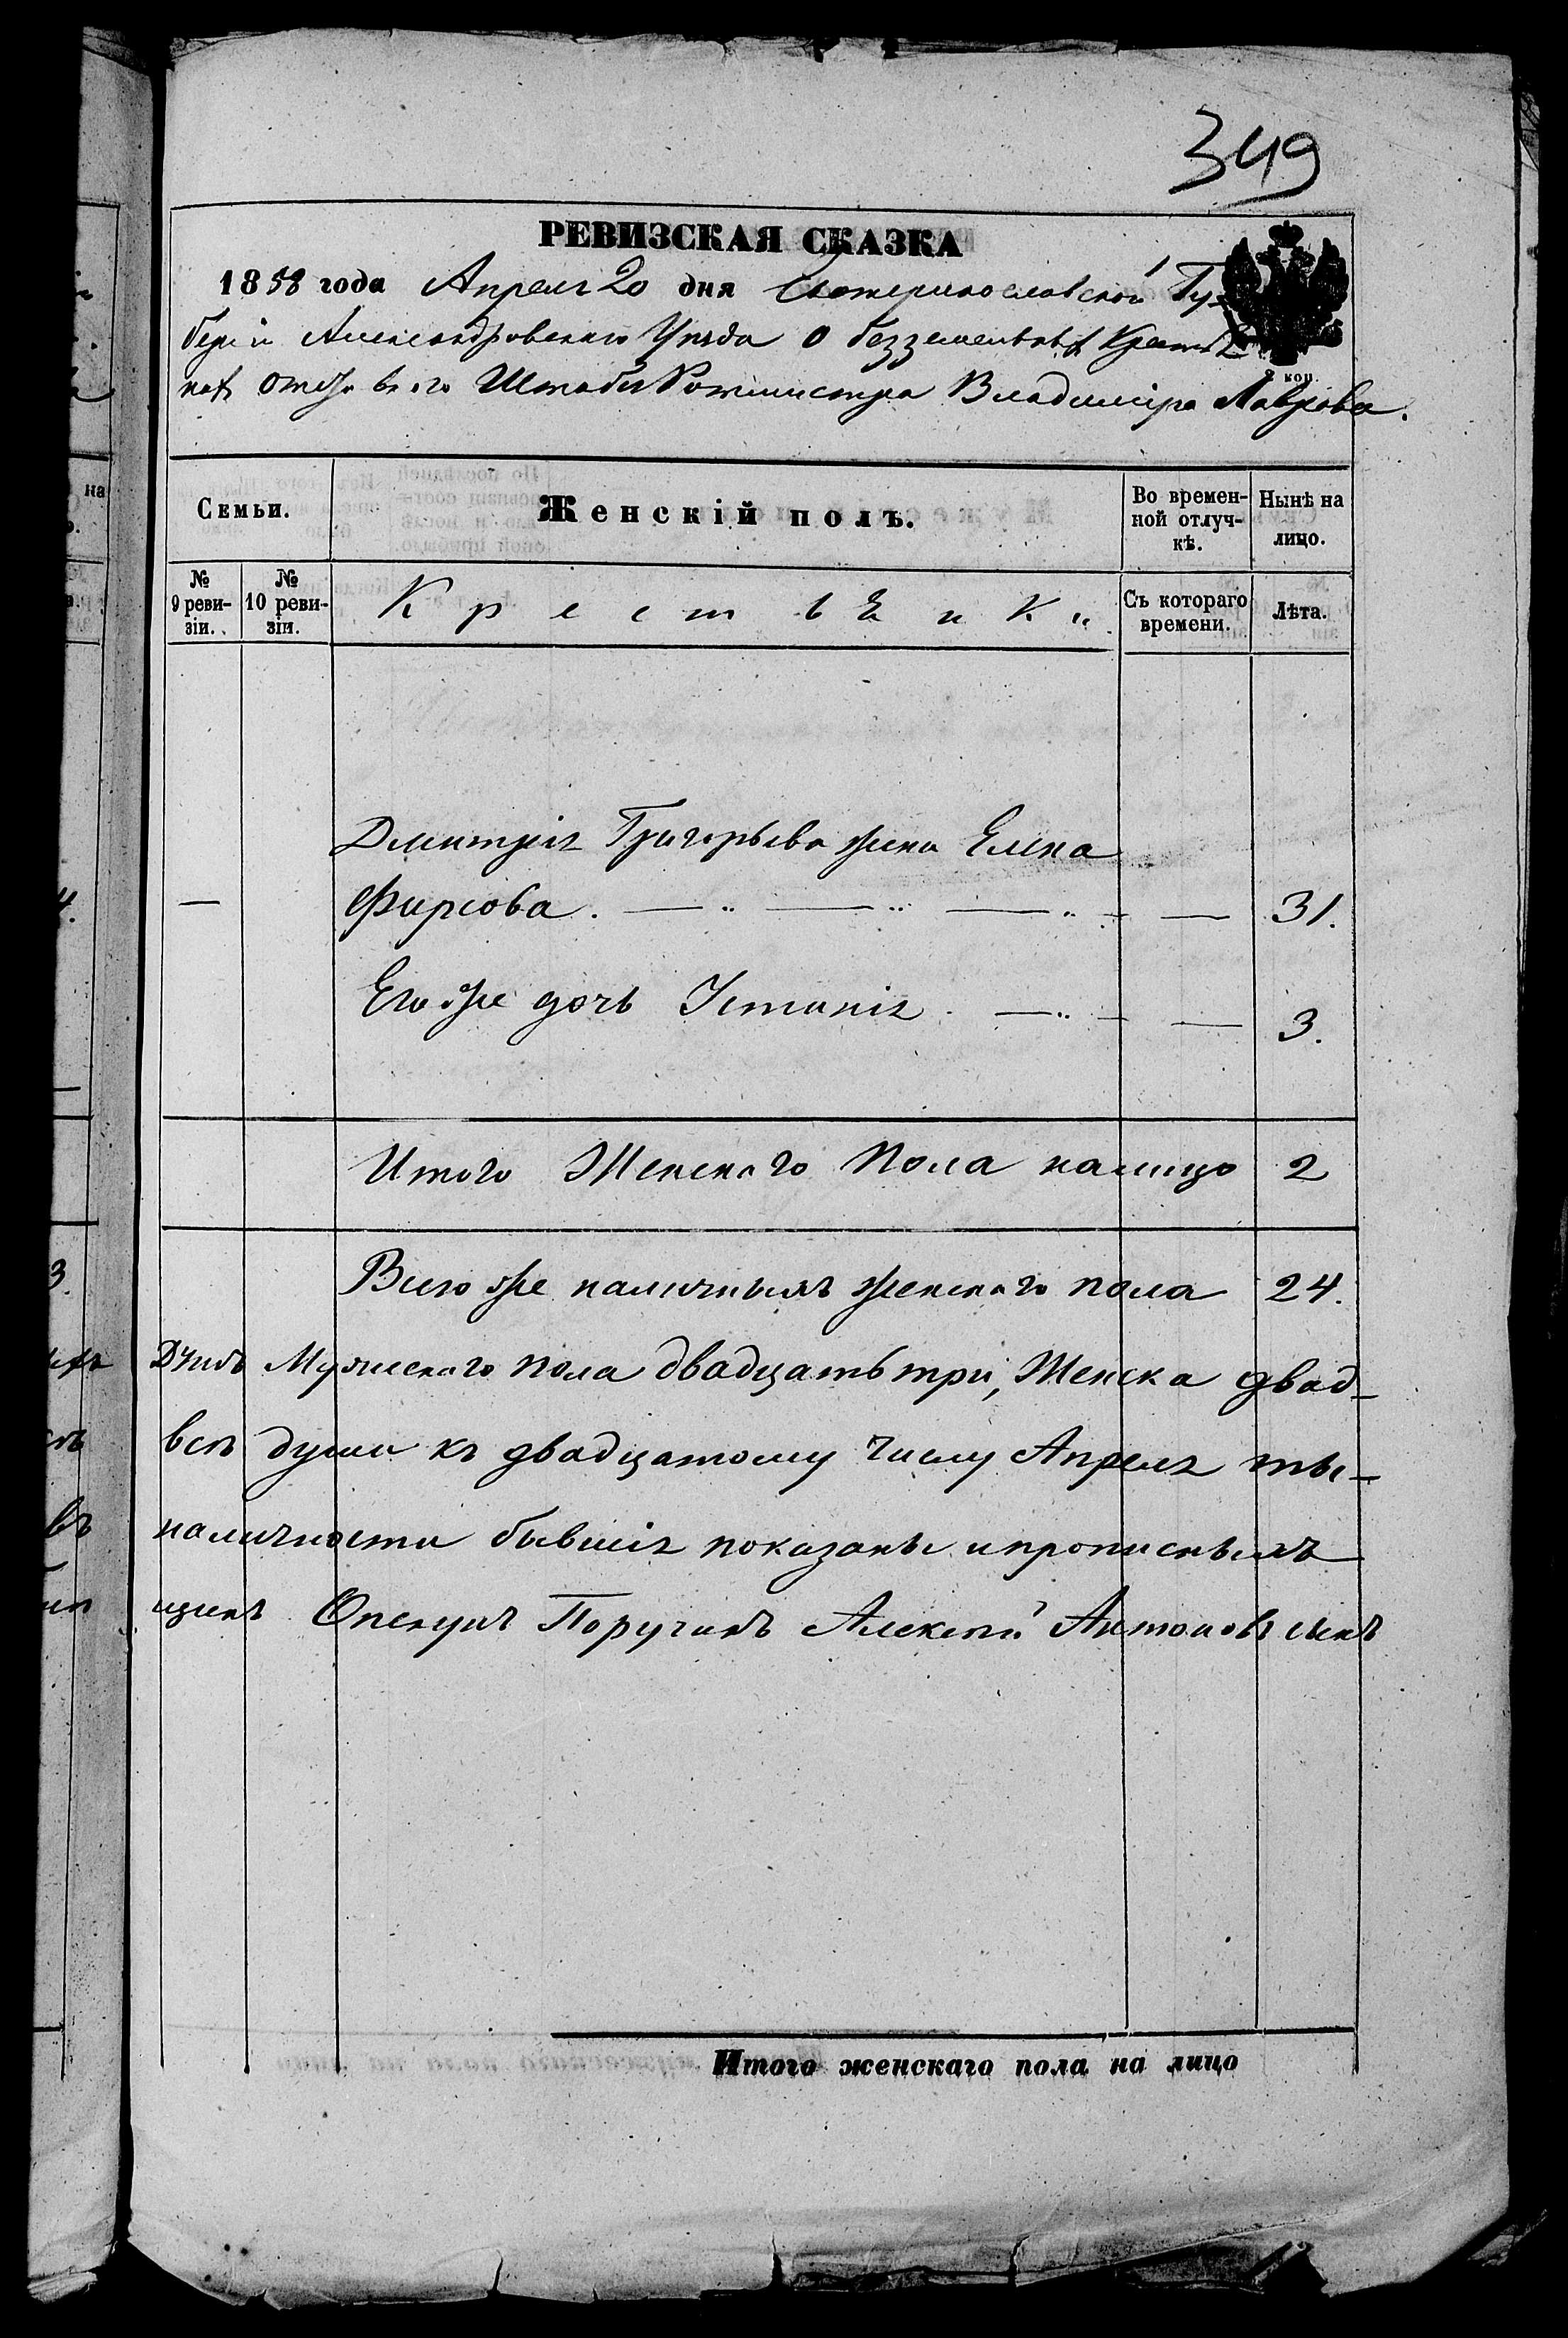 349
РЕВИЗСКАЯ СКАЗКА
1858 года Апреля 20 дня Екатеринославской Гу-
берніи Александровскаго Уѣзда о беззем​ельныхъ Крестья
нахъ Штабсъ Ротмистра Владиміра Лаврова.
2 коп.
Семьи.
Женскій полъ.
Во времен-
ной отлуч-
кѣ.
Нынѣ на
лицо.
№
9 реви-
зіи.
№
10 реви-
зіи.
Крестьянки
Съ котораго
времени.
Лѣта.
Дмитрія Григорьева жена Елена
— Фирсова. — — — — 31.
Его же дочь Устинія. — — 3.
Итого Женскаго Пола налицо 2
Всего же наличныхъ женскаго пола 24.
Мужескаго пола двадцать три, Женска двад-
всѣ души къ двадцатому числу Апреля ты-
наличности бывшія показаны и прописныхъ
Опекунъ Поручикъ Алексѣй Антоновъ сынъ
Итого женскаго пола на лицо